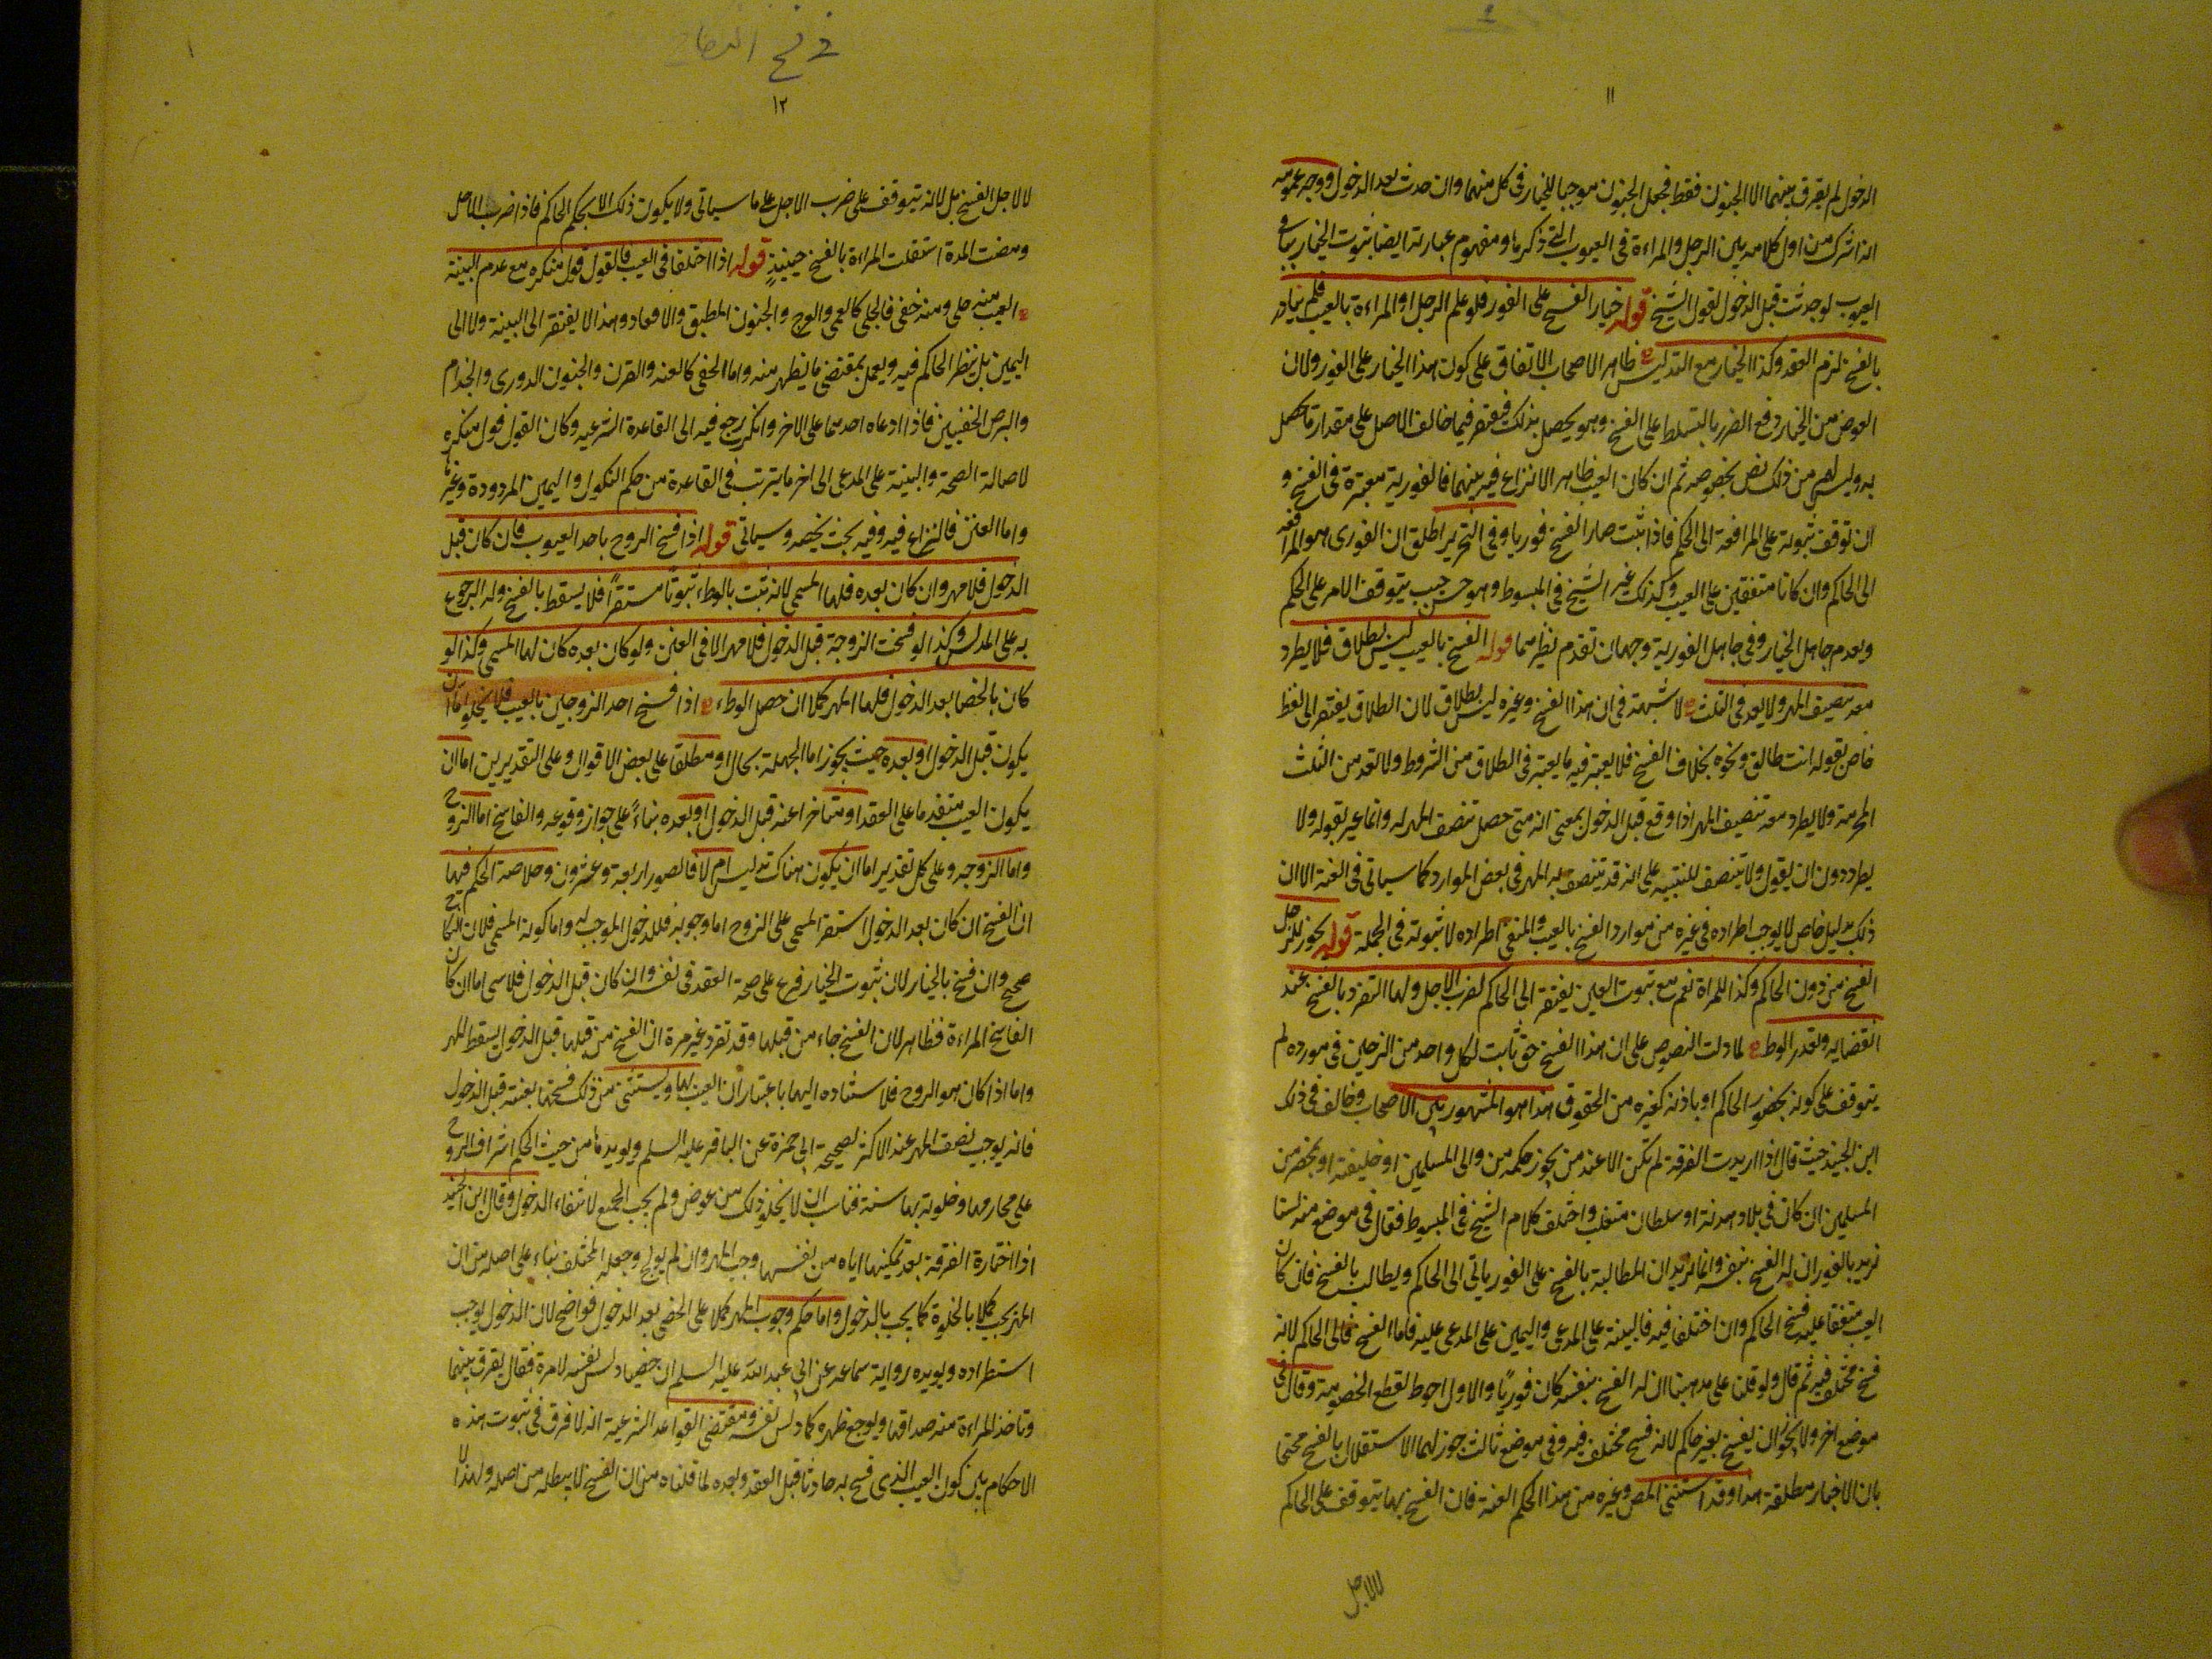 ١١
الدخول لم يفرق بينهما الا الجنون فقط فجعل الجنون موجبا للخيار في كل منهما وان حدث بعد الدخول ووجه عمومه
انه اشرك من اول كلامه بين الرجل والمراءة في العيوب التي ذكرها ومفهوم عبارته ايضا ثبوت الخيار بباقي
العيوب لو حدثت قبل الدخول لقول الشيخ قوله خيار الفسخ على الفور فلو علم الرجل او المراءة بالعيب فلم يبادر
بالفسخ لزم العقد وكذا الخيار مع التدليس ظاهر الاصحاب الاتفاق على كون هذا الخيار على الفور ولان
الغرض من الخيار دفع الضرر بالتسلط على الفسخ وهو يحصل بذلك فيقتصر فيما خالف الاصل على مقدار ما يحصل
به وليس لهم من ذلك نص بخصوصه ثم ان كان العيب ظاهر الا نزاع فيه بينهما فالفورية معتبرة في الفسخ و
ان توقف ثبوته على المرافعة الى الحاكم فاذا ثبت صار الفسخ فوريا وفي التحرير اطلق ان الفوري هو المرافعة
الى الحاكم وان كانا متفقين على العيب وكذلك غير الشيخ في المبسوط وهو حسن حيث يتوقف الامر على الحكم
ويعدم جاهل الخيار وفي جاهل الفورية وجهان تقدم نظيرهما قوله الفسخ بالعيب ليس بطلاق فلا يطرد
معه تنصيف المهر ولا يعد في الثلث لا شبهة في ان هذا الفسخ وغيره ليس بطلاق لان الطلاق يفتقر الى لفظ
خاص بقوله انت طالق ونحوه بخلاف الفسخ فلا يعتبر فيه ما يعتبر في الطلاق من الشروط ولا تعد من الثلث
المحرمة ولا يطرد معه تنصيف المهر اذا وقع قبل الدخول بمعنى انه متى حصل تنصف المهر له وانما عبر بقوله ولا
يطرد دون ان يقول ولا يتنصف للتنبيه على انه قد يتنصف به المهر في بعض الموارد كما سياتي في العنة الا ان
ذلك بدليل خاص لا يوجب اطراده في غيره من موارد الفسخ بالعيب والمنفي اطراده لا ثبوته في الجملة قوله يجوز للرجل
الفسخ من دون الحاكم وكذا للمراة نعم مع ثبوت العنن يفتقر الى الحاكم لضرب الاجل ولها التفرد بالفسخ عند
انقضايه وتعذر الوطء لما دلت النصوص على ان هذا الفسخ حق ثابت لكل واحد من الزوجين في مورده لم
يتوقف على كونه بحضور الحاكم او باذنه كغيره من الحقوق هذا هو المشهور بين الاصحاب وخالف في ذلك
ابن الجنيد حيث قال اذا اريدت الفرقة لم تكن الا عند من يجوز حكمه من والي المسلمين او خليفته او بمحضر من
المسلمين ان كان في بلاد هدنة او سلطان متغلب واختلف كلام الشيخ في المبسوط فقال في موضع منه لسنا
نريد بالفور ان له الفسخ بنفسه وانما نريد ان المطالبة بالفسخ على الفور ياتي الى الحاكم ويطالب بالفسخ فان كان
العيب متفقا عليه فسخ الحاكم وان اختلفا فيه فالبينة على المدعي واليمين على المدعى عليه فاما الفسخ فالى الحاكم لانه
فسخ مختلف فيه ثم قال ولو قلنا على مذهبنا ان له الفسخ بنفسه كان قويا والاول احوط لقطع الخصومة وقال في
موضع اخر ولا يجوز ان يفسخ بغير حاكم لانه فسخ مختلف فيه وفي موضع ثالث جوز لهما الاستقلال بالفسخ محتجا
بان الاخبار مطلقة هذا وقد استثنى المص وغيره من هذا الحكم العنة فان الفسخ بها يتوقف على الحاكم
لا لاجل
١٢
لا لاجل الفسخ بل لانه يتوقف على ضرب الاجل على ما سياتي ولا يكون ذلك الا بحكم الحاكم فاذا ضرب الاجل
ومضت المدة استقلت المراءة بالفسخ حينيذ قوله اذا اختلفا في العيب فالقول قول منكره مع عدم البينة
العيب منه جلي ومنه خفي فالجلي كالعمى والعرج والجنون المطبق والاقعاد وهذا لا يفتقر الى البينة ولا الى
اليمين بل ينظر الحاكم فيه ويعمل بمقتضى ما يظهر منه واما الخفي كالعنه والقرن والجنون الدوري والجذام
والبرص الخفيين فاذا ادعاه احدهما على الاخر وانكر رجع فيه الى القاعدة الشرعيه وكان القول قول منكره
لاصالة الصحة والبينة على المدعي الى اخر ما يترتب في القاعدة من حكم النكول واليمين المردودة وغيرها
واما العنن فالنزاع فيه وفيه بحث يخصه وسياتي قوله اذا فسخ الزوج باحد العيوب فان كان قبل
الدخول فلا مهر وان كان بعده فلها المسمى لانه ثبت بالوطء ثبوتا مستقرا فلا يسقط بالفسخ وله الرجوع
به على المدلس وكذا لو فسخت الزوجة قبل الدخول فلا مهر الا في العنن ولو كان بعده كان لها المسمى وكذا لو
كان بالخصا بعد الدخول فلها المهر كملا ان حصل الوطء اذا فسخ احد الزوجين بالعيب فلا يخلو اما ان
يكون قبل الدخول او بعده حيث يجوز اما الجهله بحال او مطلقا على بعض الاقوال وعلى التقديرين اما ان
يكون العيب متقدما على العقد او متاخرا عنه قبل الدخول او بعده بناء على جواز وقوعه والفاسخ اما الزوج
واما الزوجه وعلى كل تقدير اما ان يكون هناك تدليس ام لا فالصور اربعة وعشرون وخلاصة الحكم فيها
ان الفسخ ان كان بعد الدخول استقر المسمى على الزوج اما وجوبه فللدخول الموجب له واما كونه المسمى فلان النكاح
صحيح وان فسخ بالخيار لان ثبوت الخيار فرع على صحة العقد في نفسه وان كان قبل الدخول فلا شي اما ان كان
الفاسخ المراءة فظاهر لان الفسخ جاء من قبلها وقد تقرر غير مرة ان الفسخ من قبلها قبل الدخول يسقط المهر
واما اذا كان هو الزوج فلاستناده اليها باعتبار ان العيب بها ويستثنى من ذلك فسخها بعنته قبل الدخول
فانه يوجب نصف المهر عند الاكثر لصحيحة ابي حمزة عن الباقر عليه السلم ويويدها من حيث الحكم اشراف الزوج
على محارمها وخلوته بها سنة فناسب ان لا يخلو ذلك من عوض ولم يجب الجميع لانتفاء الدخول وقال ابن الجنيد
اذا اختارة الفرقة بعد تمكينها اياه من نفسها وجب المهر وان لم يولج وجعله المختلف بناء على اصله من ان
المهر يجب كملا بالخلوة كما يجب بالدخول واما حكم وجوب المهر كملا على الخصي بعد الدخول فواضح لان الدخول يوجب
استطراده ويويده رواية سماعه عن ابي عبد الله عليه السلم ان خصيا دلس نفسه لامرة فقال يفرق بينهما
وتاخذ المراءة منه صداقها ويوجع ظهره كما دلس نفسه ومقتضى القواعد الشرعية انه لا فرق في ثبوت هذه
الاحكام بين كون العيب الذي فسخ به حادثا قبل العقد وبعده لما قلناه من ان الفسخ لا يبطله من اصله ولهذا لا